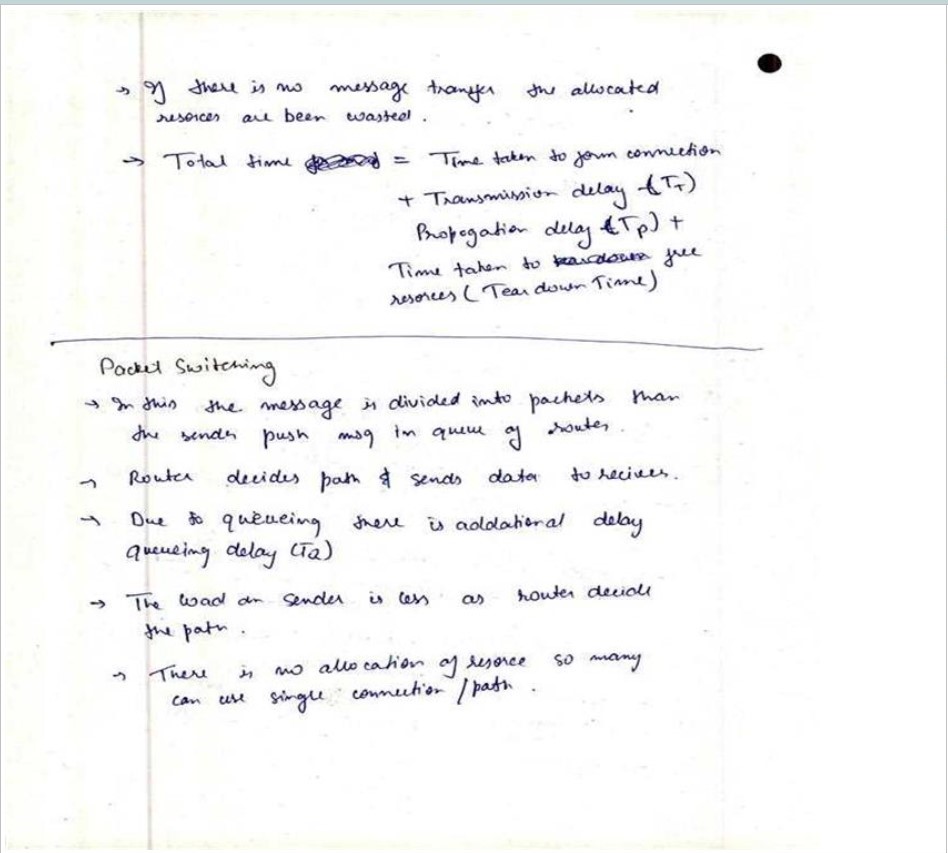 → If there is no message transfer the allocated
resorces are been wasted.
→ Total time = Time taken to form connection
+ Transmission delay (TT)
Propogation delay (Tp) +
Time taken to teardown free
resorces (Tear down Time)
Packet Switching
→ In this the message is divided into packets than
the sender push msg in queue of router.
→ Router decides path & sends data to reciver.
→ Due to queueing there is addational delay
queueing delay (TQ)
→ The load on sender is less as router decide
the path.
→ There is no allocation of resorce so many
can use single connection / path.